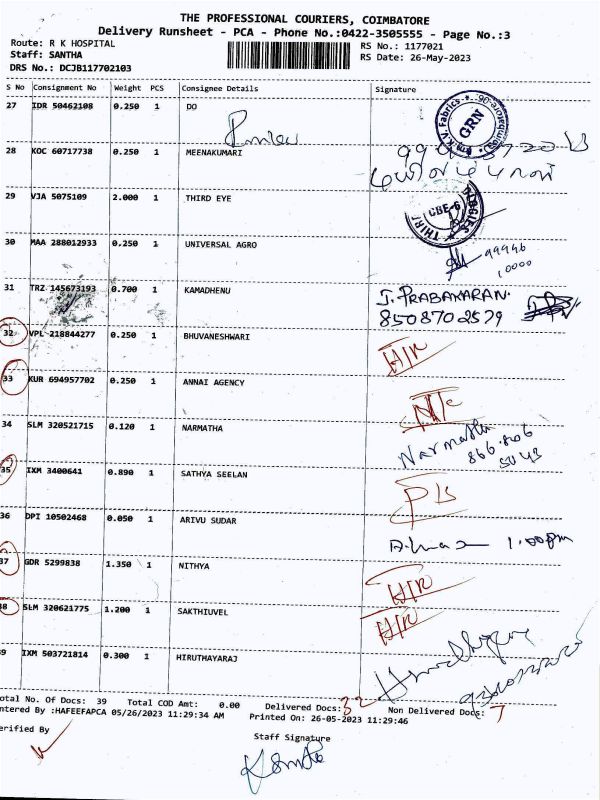 THE PROFESSIONAL COURIERS, COIMBATORE
Delivery Runsheet - PCA - Phone No.:0422-3505555 - Page No.:3
Route: R K HOSPITAL
Staff: SANTHA
DRS No.: DCJB117702103
RS No.: 1177021
RS Date: 26-May-2023
S No Consignment No Weight PCS Consignee Details Signature
27 IDR 50462108 0.250 1 DO
K.V. Fabrics GRN
28 KOC 60717738 0.250 1 MEENAKUMARI
29 VJA 5075109 2.000 1 THIRD EYE
CBE-6
30 MAA 288012933 0.250 1 UNIVERSAL AGRO
99946
10000
31 TRZ 145673193 0.700 1 KAMADHENU
J. PRABAKARAN.
8508702579
32 VPL 218844277 0.250 1 BHUVANESHWARI
33 KUR 694957702 0.250 1 ANNAI AGENCY
34 SLM 320521715 0.120 1 NARMATHA
Narmatha
35 IXM 3400641 0.890 1 SATHYA SEELAN
36 DPI 10502468 0.050 1 ARIVU SUDAR
1.00pm
37 GDR 5299838 1.350 1 NITHYA
H/R
38 SLM 320621775 1.200 1 SAKTHIUVEL
H/R
9 IXM 503721814 0.300 1 HIRUTHAYARAJ
otal No. Of Docs: 39 Total COD Amt: 0.00 Delivered Docs: 32 Non Delivered Docs: 7
ntered By :HAFEEFAPCA 05/26/2023 11:29:34 AM Printed On: 26-05-2023 11:29:46
erified By
Staff Signature